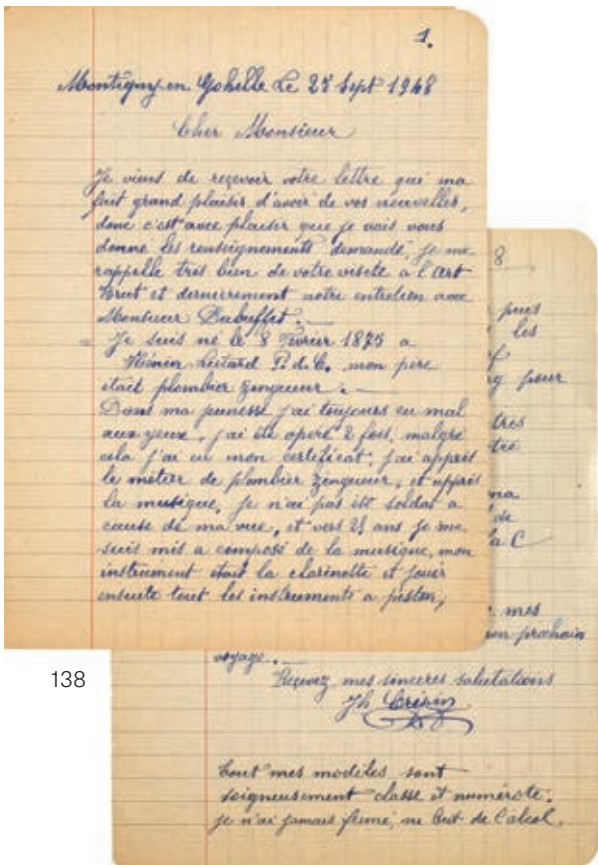 1.
Montigny en Gohelle Le 25 Sept 1948
Cher Monsieur
Je viens de reçevoir votre lettre qui ma
fait grand plaisir d'avoir de vos nouvelles,
donc c'est avec plaisir que je vais vous
donne les renseignements demandé, je me
rappelle très bien de votre visite a l'Art
Brut et dernierrement notre entretien avec
Monsieur Dubuffet.
Je suis né le 8 Fevrier 1875 a
Hénin-Liétard P. d. C. mon pere
était plombier zingueur.
Dans ma jeunesse j'ai toujours eu mal
aux yeux, j'ai été operé 2 fois, malgré
cela j'ai eu mon certificat, j'ai appris
le métier de plombier zingueur, et appris
la musique, je n'ai pas été soldat a
cause de ma vue, et vers 21 ans je me
suis mis a composé de la musique, mon
instrument était la clarinette et jouer
ensuite tout les instruments a piston,
8
puis
les
pour
tres
ma
de
la C
mes
mon prochain
voyage.
Reçevez mes sinceres salutations
Jh Crépin
Tout mes modèles sont
soigneusement classe et numéroté.
je n'ai jamais fumé, ne but de l'alcol.
138